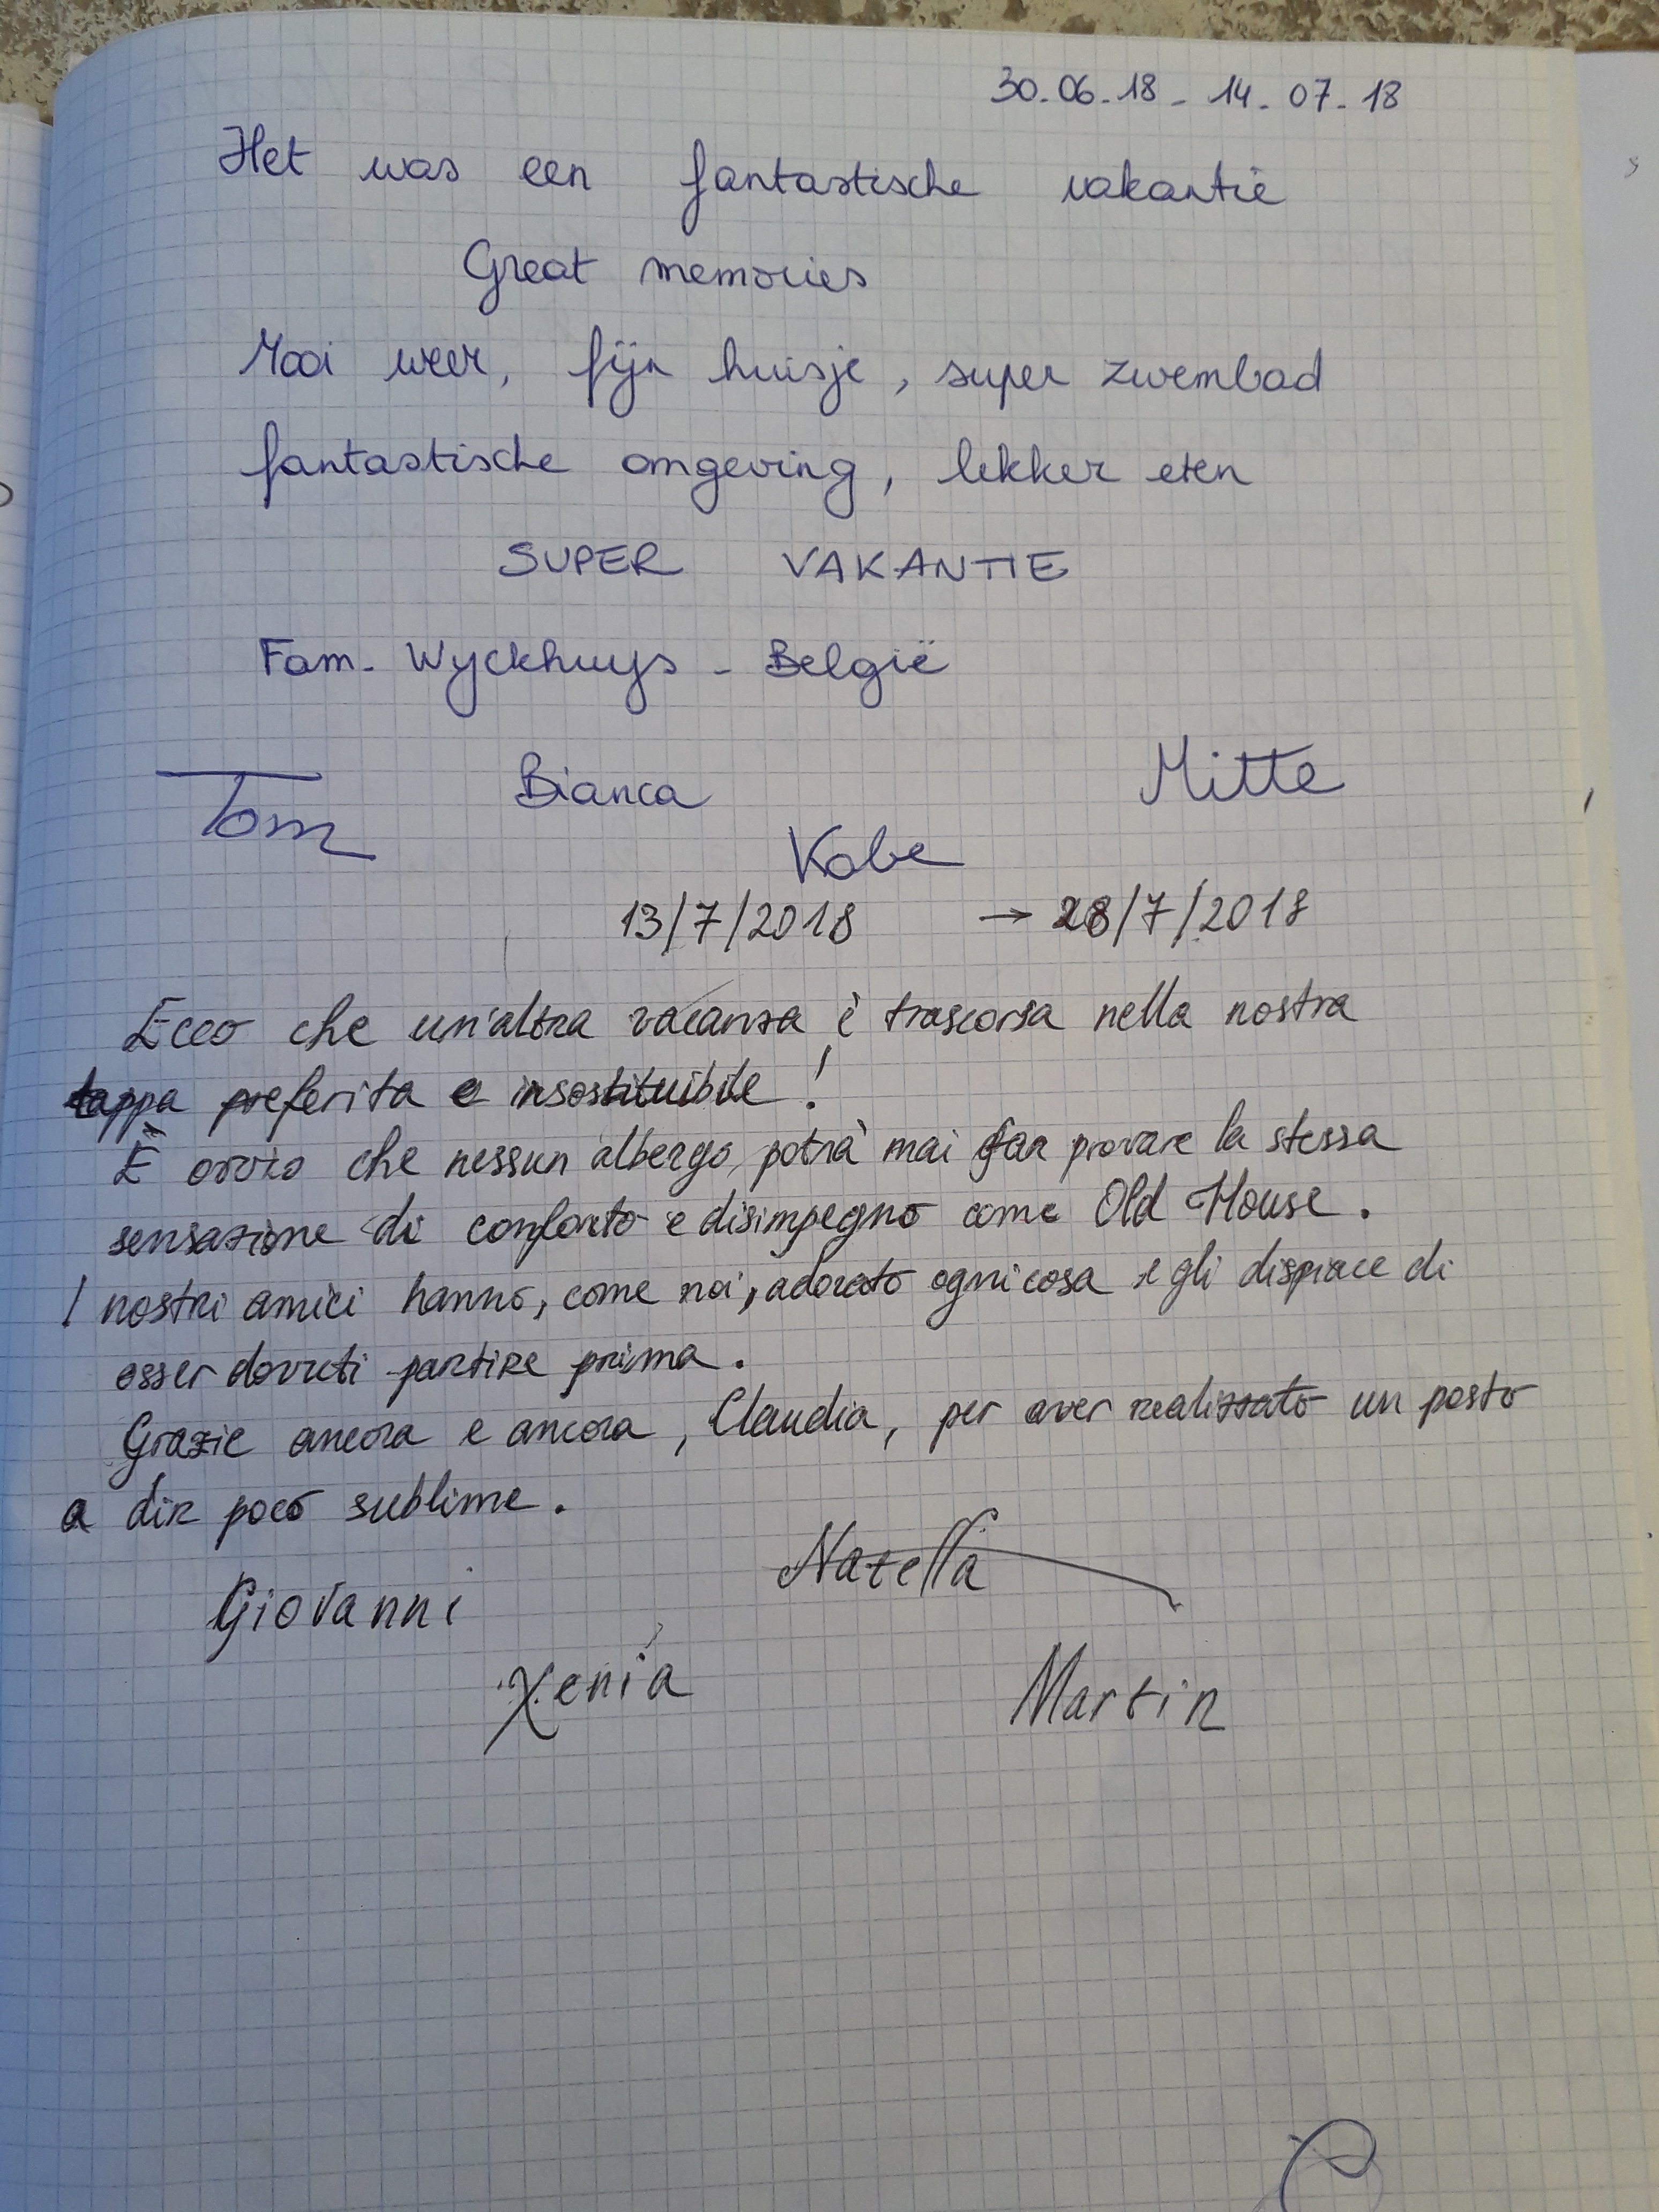 30-06-18 - 14-07-18
Het was een fantastische vakantie
Great memories
Mooi weer, fijn huisje, super zwembad
fantastische omgeving, lekker eten
SUPER VAKANTIE
Fam. Wyckhuys - België
Tom Bianca Mitte
Kobe
13/7/2018 → 28/7/2018
Ecco che un'altra vacanza è trascorsa nella nostra
tappa preferita e insostituibile!
È ovvio che nessun albergo potrà mai far provare la stessa
sensazione di conforto e disimpegno come Old House.
I nostri amici hanno, come noi, adorato ogni cosa e gli dispiace di
esser dovuti partire prima.
Grazie ancora e ancora, Claudia, per aver realizzato un posto
a dir poco sublime.
Giovanni Natella
Xenia Martin